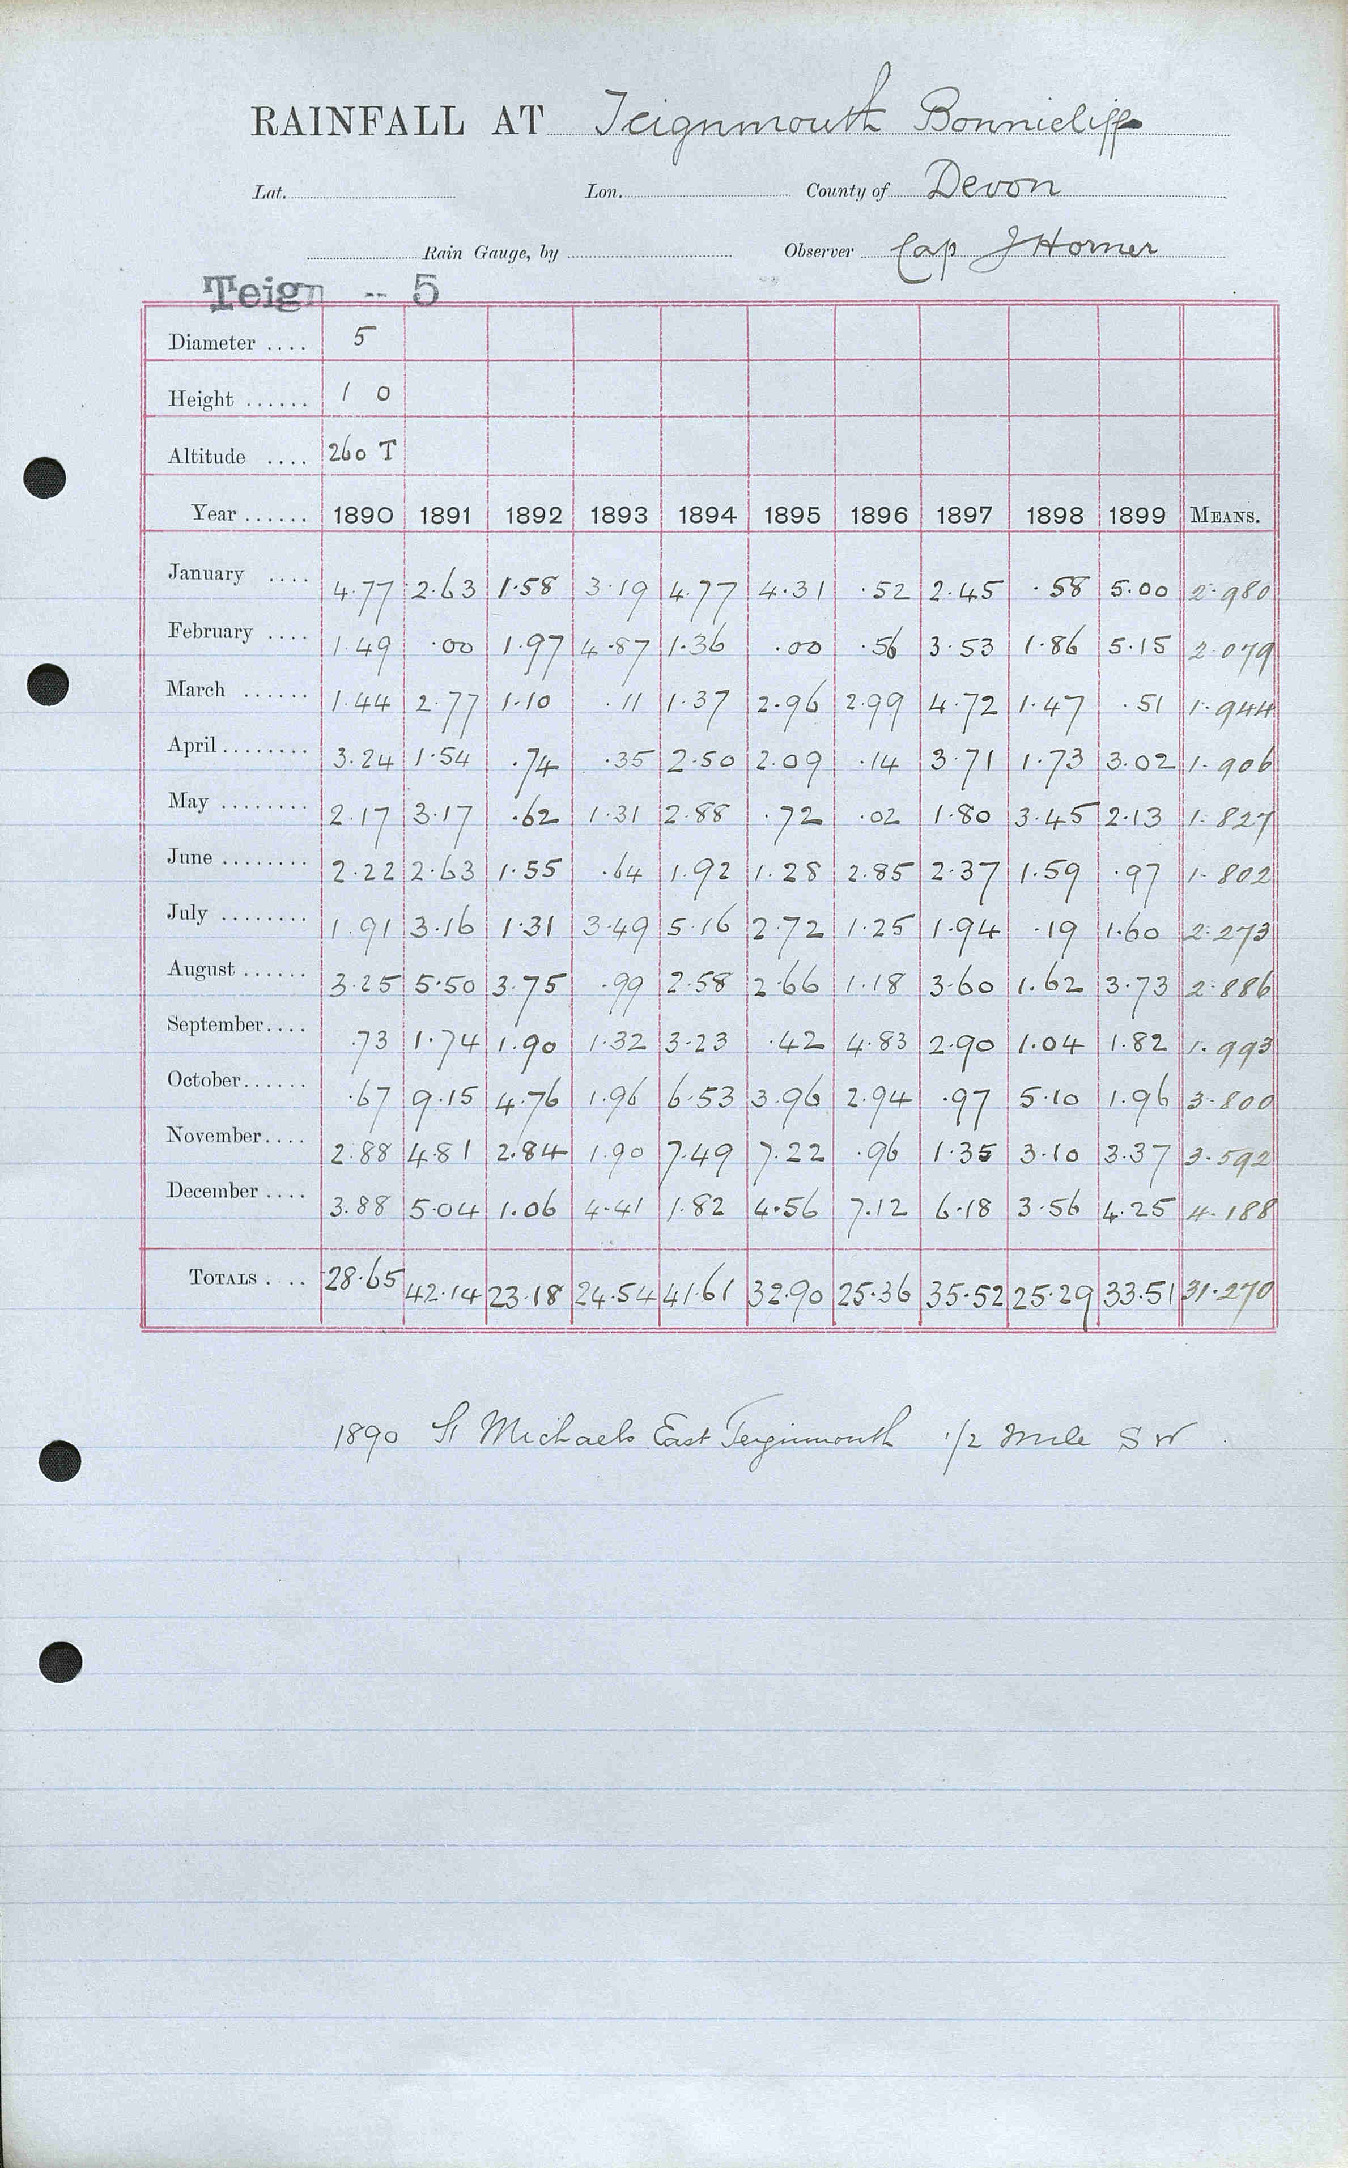 RAINFALL AT Teignmouth Bonniecliff
Lat. Lon. County of Devon
Rain Gauge, by Observer Cap J Horner
Teign -- 5
Diameter .... 5
Height ...... 1 0
Altitude .... 260 T
Year ...... 1890 1891 1892 1893 1894 1895 1896 1897 1898 1899 MEANS.
January .... 4.77 2.63 1.58 3.19 4.77 4.31 .52 2.45 .58 5.00 2.980
February .... 1.49 .00 1.97 4.87 1.36 .00 .56 3.53 1.86 5.15 2.079
March ...... 1.44 2.77 1.10 .11 1.37 2.96 2.99 4.72 1.47 .51 1.944
April ........ 3.24 1.54 .74 .35 2.50 2.09 .14 3.71 1.73 3.02 1.906
May ........ 2.17 3.17 .62 1.31 2.88 .72 .02 1.80 3.45 2.13 1.827
June ........ 2.22 2.63 1.55 .64 1.92 1.28 2.85 2.37 1.59 .97 1.802
July ........ 1.91 3.16 1.31 3.49 5.16 2.72 1.25 1.94 .19 1.60 2.273
August ...... 3.25 5.50 3.75 .99 2.58 2.66 1.18 3.60 1.62 3.73 2.886
September .... .73 1.74 1.90 1.32 3.23 .42 4.83 2.90 1.04 1.82 1.993
October ...... .67 9.15 4.76 1.96 6.53 3.96 2.94 .97 5.10 1.96 3.800
November .... 2.88 4.81 2.84 1.90 7.49 7.22 .96 1.35 3.10 3.37 3.592
December .... 3.88 5.04 1.06 4.41 1.82 4.56 7.12 6.18 3.56 4.25 4.188
TOTALS .... 28.65 42.14 23.18 24.54 41.61 32.90 25.36 35.52 25.29 33.51 31.270
1890 St Michaels East Teignmouth 1/2 mile S W